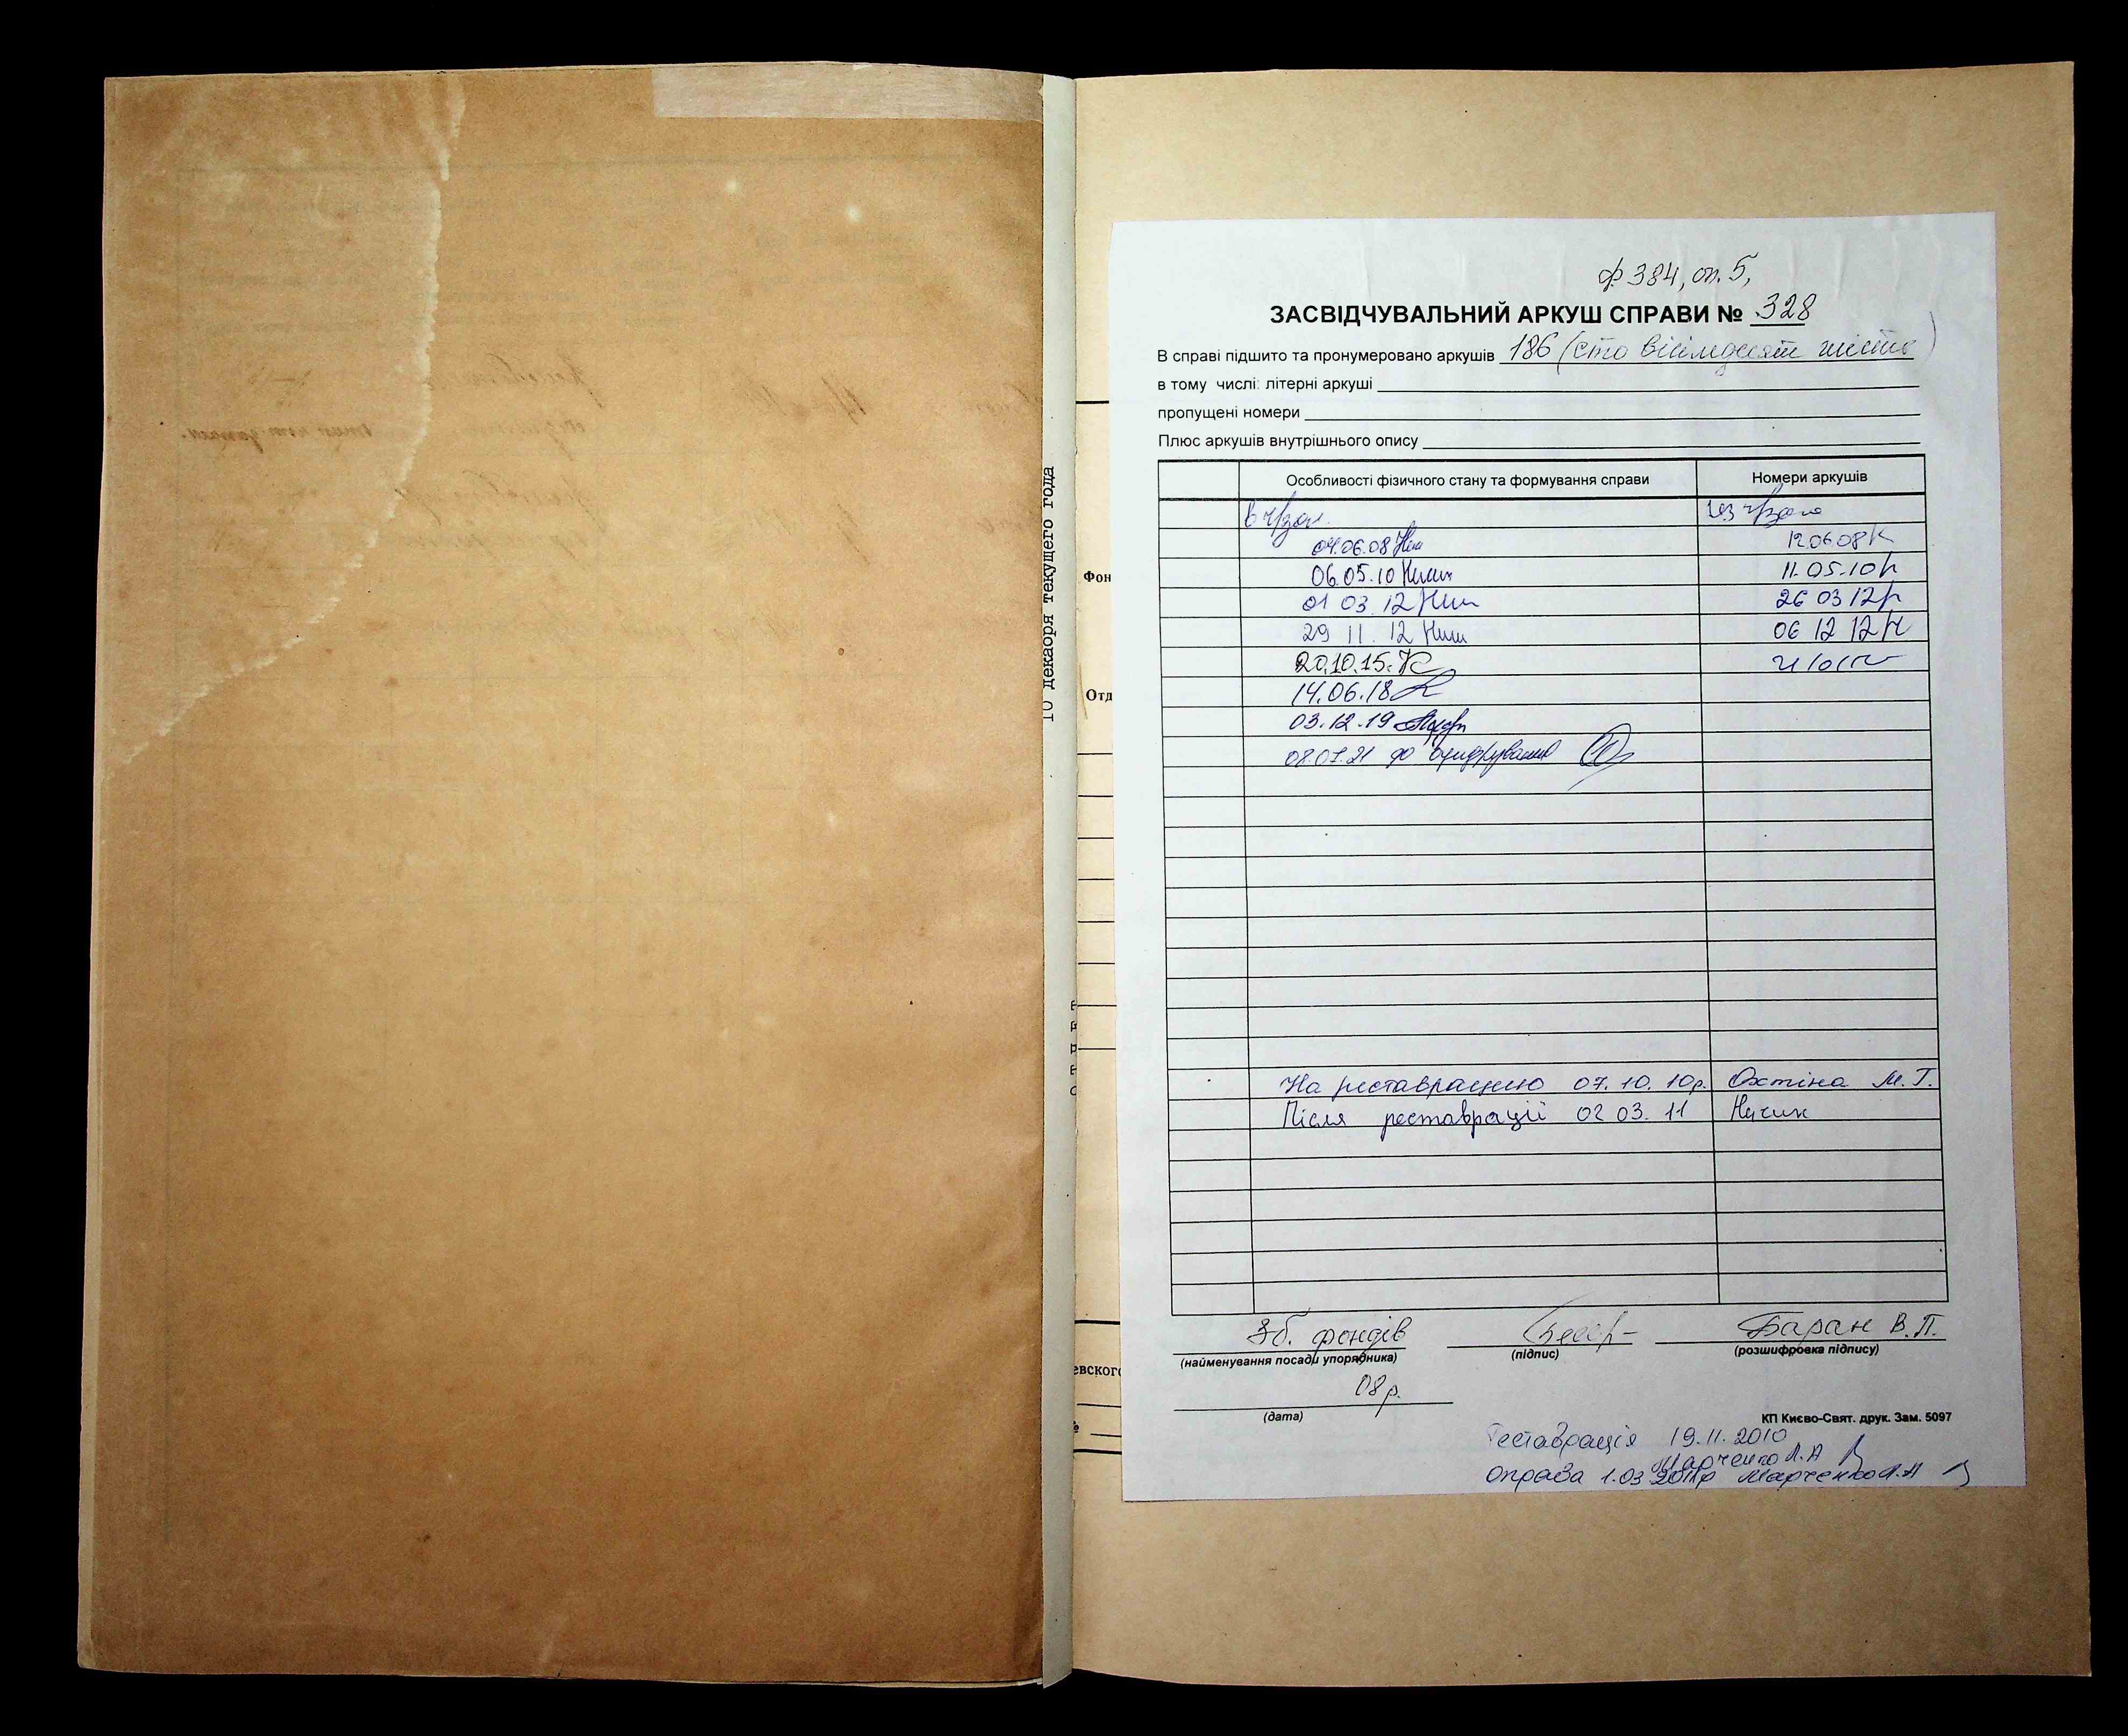 10 декабря текущего года
Фон
Отд
евского
Ф 384, оп. 5,
ЗАСВІДЧУВАЛЬНИЙ АРКУШ СПРАВИ № 328
В справі підшито та пронумеровано аркушів 186 (сто вісімдесят шість)
в тому числі: літерні аркуші
пропущені номери
Плюс аркушів внутрішнього опису
Особливості фізичного стану та формування справи Номери аркушів
В ч/зал. Із ч/залу
04.06.08 12.06.08
06.05.10 11.05.10
01 03. 12 26 03 12
29 11. 12 06 12 12
20.10.15.
14.06.18
03.12.19
08.07.21 до оцифрування
На реставрацию 07. 10. 10р. Охтіна М. Г.
Після реставрації 02 03. 11
Зб. фондів Баран В. П.
(найменування посади упорядника) (підпис) (розшифровка підпису)
08 р.
(дата)
КП Києво-Свят. друк. Зам. 5097
Реставрація 19.11.2010
Марченко Л.А
оправа 1.03 2011р Марченко Л.А